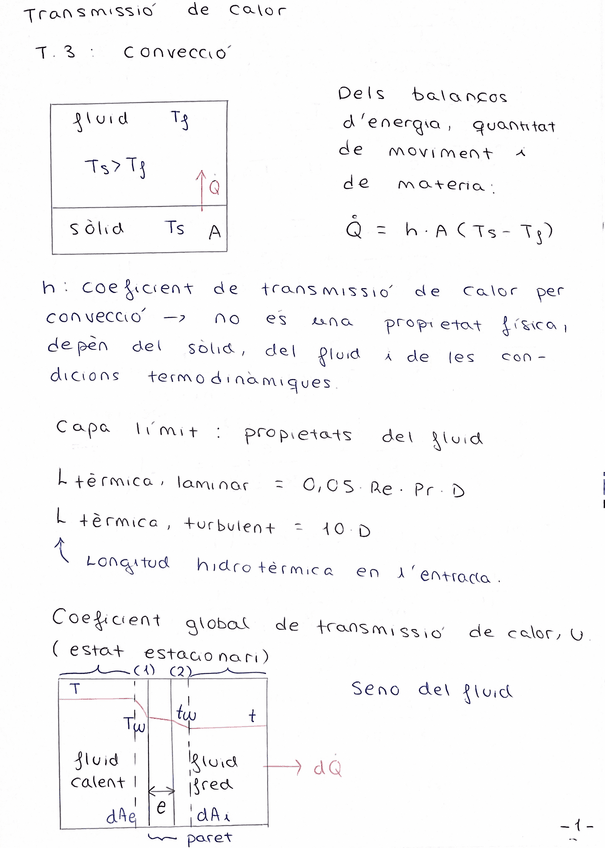 Transmissió de calor
T.3 : convecció
fluid Tf
Ts > Tf
Q̇
sòlid Ts A
Dels balanços
d'energia, quantitat
de moviment i
de materia:
Q̇ = h · A (Ts - Tf)
h: coeficient de transmissió de calor per
convecció → no és una propietat física,
depèn del sòlid, del fluid i de les con-
dicions termodinàmiques.
Capa límit : propietats del fluid
L tèrmica, laminar = 0,05 · Re · Pr · D
L tèrmica, turbulent = 10 · D
↑ Longitud hidrotèrmica en l'entrada.
Coeficient global de transmissió de calor, U.
(estat estacionari)
(1) (2)
T
Tw tw t
fluid calent
e
fluid fred
dAe dAi
paret
→ dQ̇
Seno del fluid
-1-